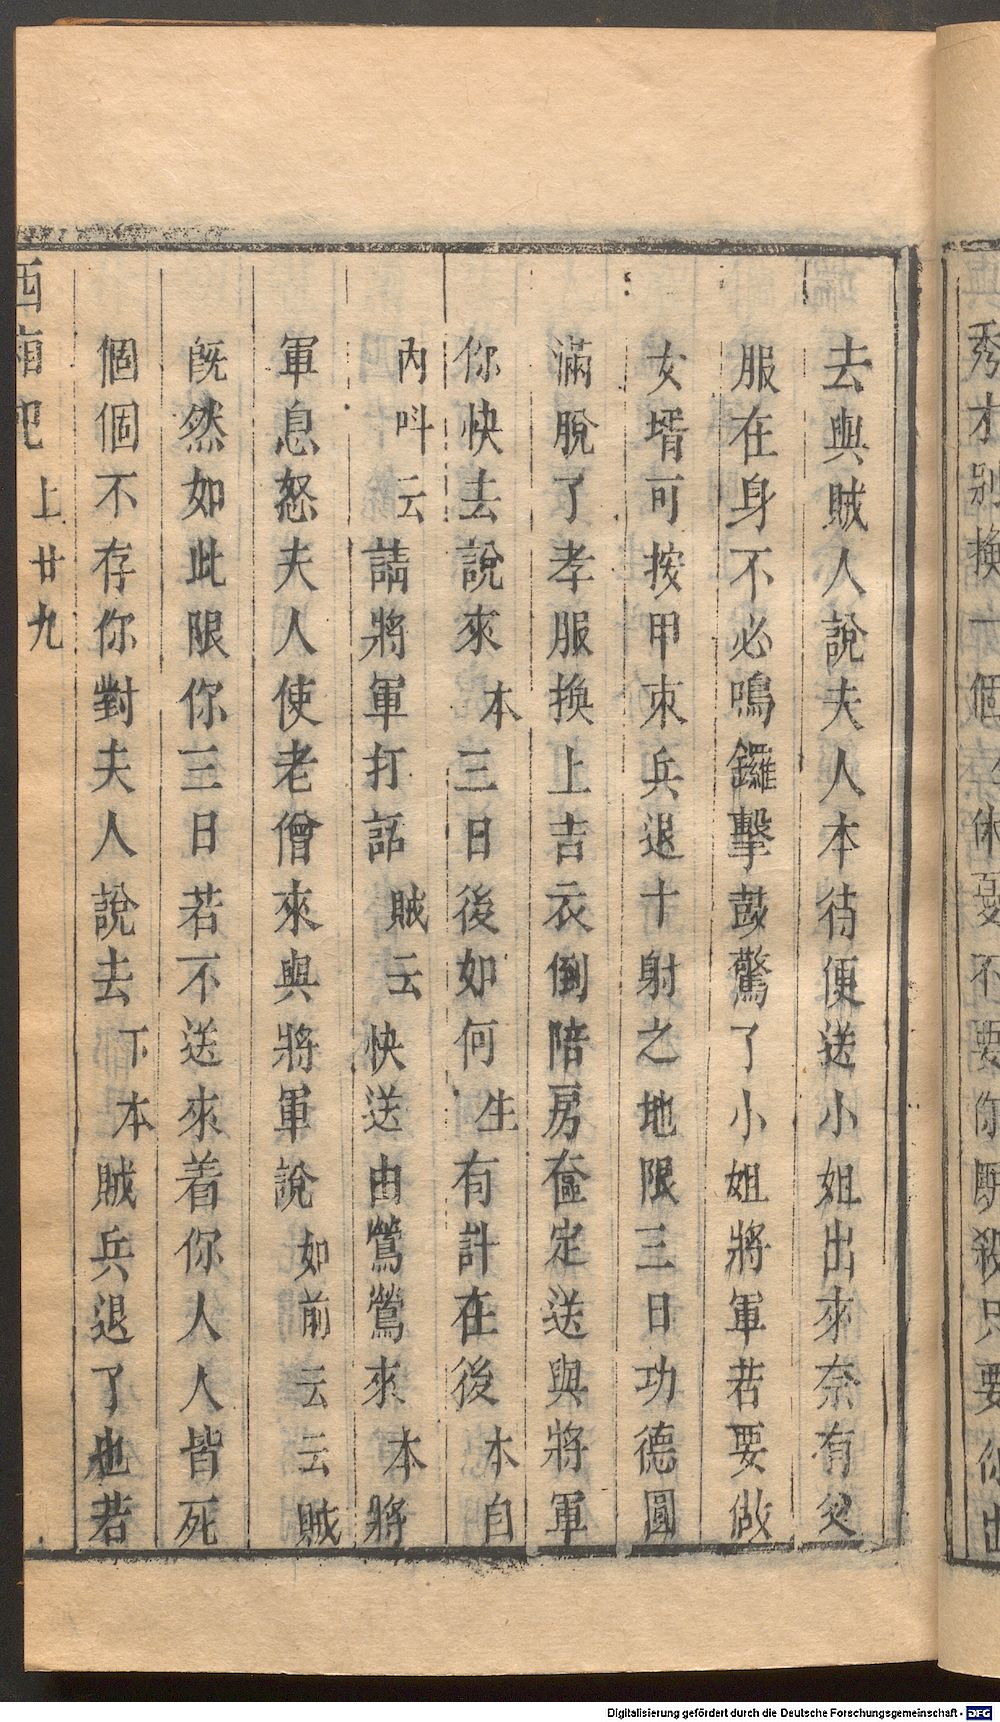 去與賊人說夫人本待便送小姐出來奈有父
服在身不必鳴鑼擊鼓驚了小姐將軍若要做
女壻可按甲束兵退十射之地限三日功德圓
滿脫了孝服換上吉衣倒陪房奩定送與將軍
你快去說來 本 三日後如何 生 有計在後 本自
內呌云 請將軍打話 賊云 快送出鶯鶯來 本 將
軍息怒夫人使老僧來與將軍說 如前云云 賊
旣然如此限你三日若不送來着你人人皆死
個個不存你對夫人說去 下 本 賊兵退了也若
西廂記 上 廿九
秀才別換一個
不要你
殺只要你出
Digitalisierung gefördert durch die Deutsche Forschungsgemeinschaft - DFG